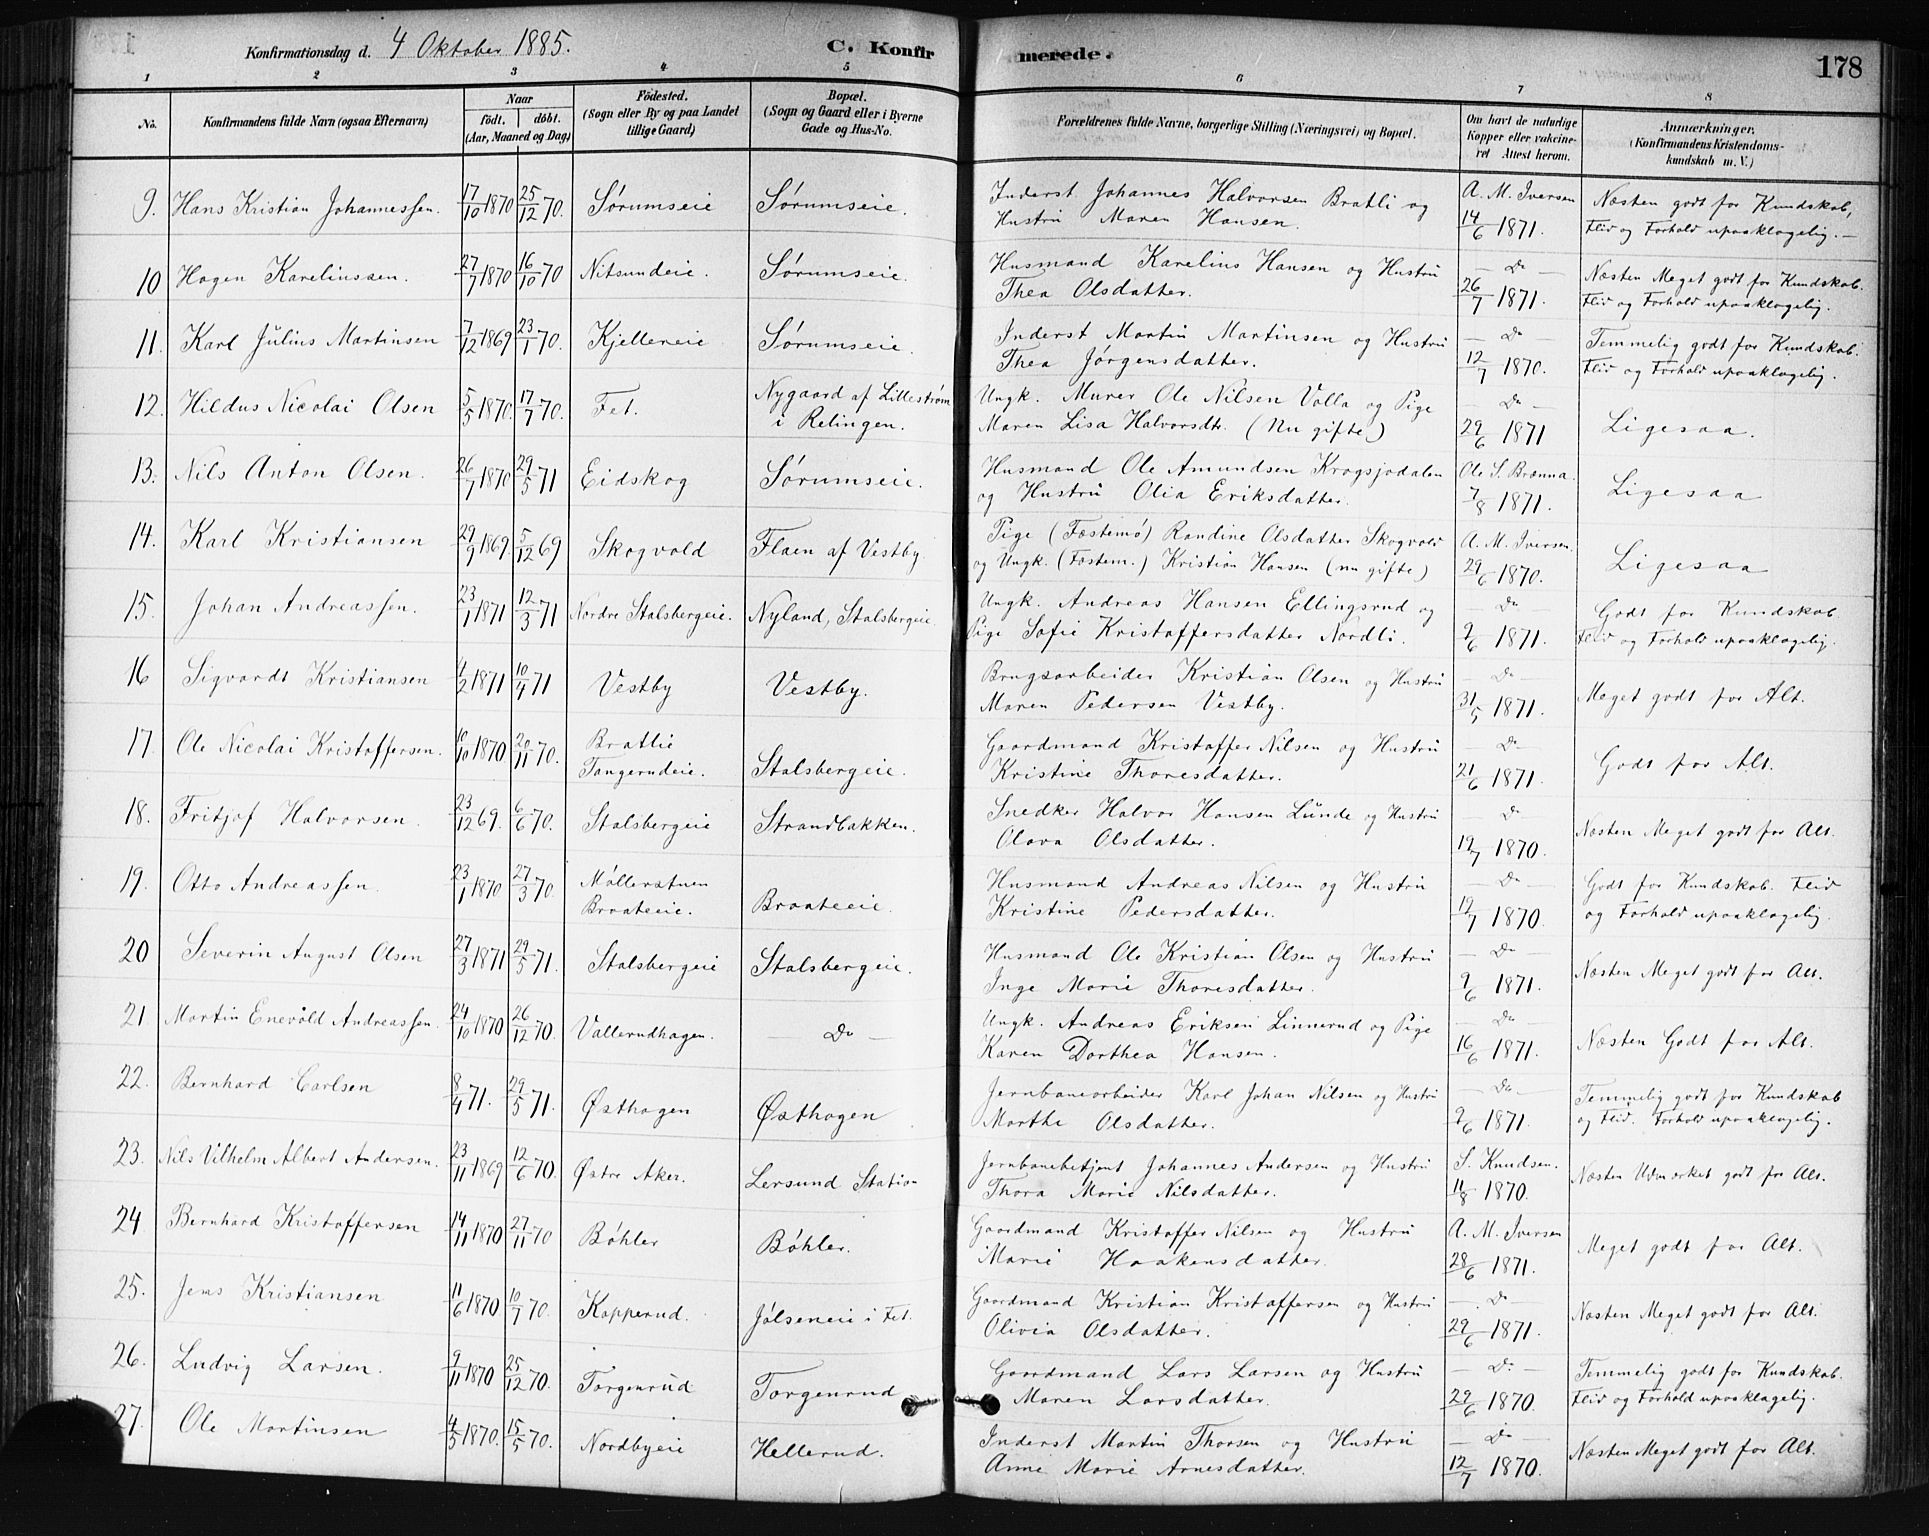 Konfirmationsdag d. 4 Oktober 1885. C. Konfirmerede. 178
1 2 3 4 5 6 7 8
No. Konfirmandens fulde Navn (ogsaa Efternavn) Naar født. døbt. (Aar, Maaned og Dag) Fødested. (Sogn eller By og paa Landet tillige Gaard) Bopæl. (Sogn og Gaard eller i Byerne Gade og Hus-No. Forældrenes fulde Navne, borgerlige Stilling (Næringsvei) og Bopæl. Om havt de naturlige Kopper eller vakcineret Attest herom. Anmærkninger. (Konfirmandens Kristendomskundskab m. V.)
9. Hans Kristian Johannessen. 17/10 1870 25/12 70. Sørumseie Sørumseie. Inderst Johannes Halvorsen Bratli og A. M. Iversen Næsten godt for Kundskab,
Hustru Maren Hansen. 14/6 1871. Flid og Forhold upaaklagelig. —
10 Hagen Karelinssen. 27/7 1870 16/10 70 Nitsundeie. Sørumseie. Husmand Karelius Hansen og Hustru — Do — Næsten Meget godt for Kundskab.
Thea Olsdatter. 26/7 1871. Flid og Forhold upaaklagelig.
11. Karl Julius Martinsen 7/12 1869 23/1 70. Kjellereie Sørumseie. Inderst Martin Martinsen og Hustru — Do — Temmelig godt for Kundskab.
Thea Jørgensdatter. 12/7 1870. Flid og Forhold upaaklagelig.
12. Hildus Nicolai Olsen 5/5 1870. 17/7 70. Fet. Nygaard af Lillestrøm Ungk. Murer Ole Nilsen Volla og Pige — Do — Ligesaa.
i Relingen. Maren Lisa Halvorsdtr. (Nu gifte) 29/6 1871
13. Nils Anton Olsen. 26/7 1870 29/5 71 Eidskog Sørumseie. Husmand Ole Amundsen Krogsjødalen Ole S. Brænna. Ligesaa
og Hustru Olia Eriksdatter. 7/8 1871.
14. Karl Kristiansen 29/9 1869. 5/12 69 Skogvold Flaen af Vestby. Pige (Fæstemø) Randine Olsdatter Skogvold A. M. Iversen. Ligesaa
og Ungk. (Fæstem.) Kristian Hansen (nu gifte) 29/6 1870.
15. Johan Andreassen. 23/1 1871 12/3 71 Nordre Stalsbergeie. Nyland, Stalsbergeie. Ungk. Andreas Hansen Ellingsrud og — Do — Godt for Kundskab
Pige Sofie Kristoffersdatter Nordli. 9/6 1871. Flid og Forhold upaaklagelig.
16 Sigvardt Kristiansen 4/2 1871 10/4 71 Vestby Vestby. Brugsarbeider Kristian Olsen og Hustru — Do — Meget godt for Alt.
Maren Pedersen Vestby. 31/5 1871.
17. Ole Nicolai Kristoffersen. 10/10 1870 20/11 70. Bratlie Tangerudeie. Stalsbergeie. Gaardmand Kristoffer Nilsen og Hustru — Do — Godt for Alt.
Kristine Thoresdatter. 21/6 1871.
18. Fritjof Halvorsen. 23/12 69. 6/6 70. Stalsbergeie Strandbakken. Snedker Halvor Hansen Lunde og Hustru Do Næsten Meget godt for Alt.
Olava Olsdatter. 19/7 1870.
19. Otto Andreassen. 23/1 1870 27/3 70. Møllerstuen Braateeie. Braateeie. Husmand Andreas Nilsen og Hustru — Do — Godt for Kundskab. Flid
Kristine Pedersdatter. 19/7 1870. og Forhold upaaklagelig.
20 Severin August Olsen 27/3 1871 29/5 71. Stalsbergeie Stalsbergeie. Husmand Ole Kristian Olsen og Hustru — Do — Næsten Meget godt for Alt.
Inge Marie Thoresdatter. 9/6 1871.
21 Martin Enevold Andreassen. 24/10 1870 26/12 70. Vallerudhagen. — Do — Ungk. Andreas Eriksen Linnerud og Pige — Do — Næsten Godt for Alt.
Karen Dorthea Hansen. 16/6 1871.
22. Bernhard Carlsen 8/4 71. 29/5 71. Østhagen Østhagen Jernbanearbeider Karl Johan Nilsen og Hustru — Do — Temmelig godt for Kundskab
Marthe Olsdatter. 9/6 1871. og Flid. Forhold upaaklagelig.
23. Nils Vilhelm Albert Andersen. 23/11 1869 12/6 70. Østre Aker. Lersund Station Jernbanebetjent Johannes Andersen og Hustru S. Knudsen. Næsten Udmærket godt for Alt.
Thora Marie Nilsdatter. 11/8 1870.
24 Bernhard Kristoffersen 14/11 1870 27/11 70 Bøhler Bøhler. Gaardmand Kristoffer Nilsen og Hustru A. M. Iversen Meget godt for Alt.
Marie Haakensdatter. 28/6 1871.
25. Jens Kristiansen 11/6 1870 10/7 70. Kopperud. Jølseneie i Fet. Gaardmand Kristian Kristoffersen og Hustru — Do — Næsten Meget godt for Alt.
Olivia Olsdatter. 29/6 1871.
26. Ludvig Larsen. 9/11 1870 25/12 70. Torgenrud Torgenrud Gaardmand Lars Larsen og Hustru — Do — Temmelig godt for Kundskab.
Maren Larsdatter. 29/6 1870. Flid og Forhold upaaklagelig.
27. Ole Martinsen 4/3 1870. 15/5 70. Nordbyeie Hellerud. Inderst Martin Thorsen og Hustru — Do — Næsten Meget godt for Alt.
Anne Marie Arnesdatter. 12/7 1870.